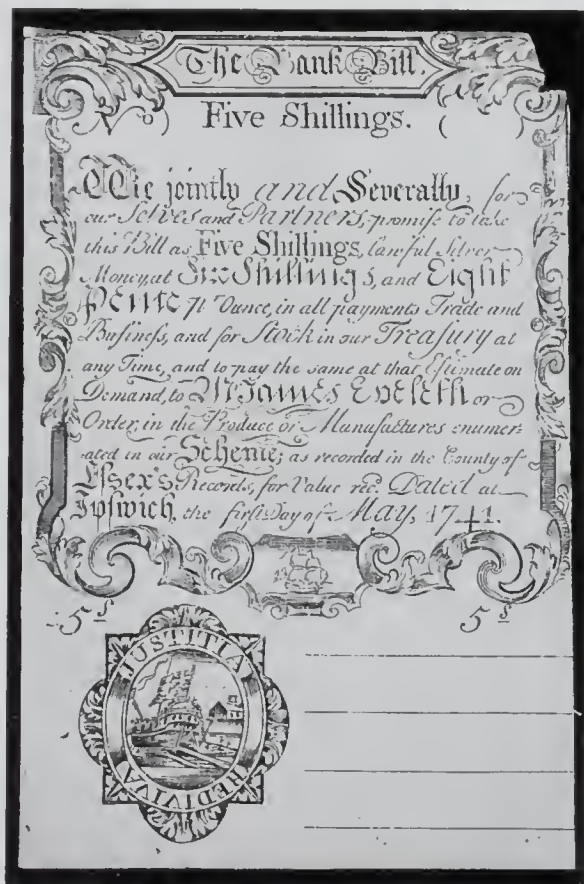 The Bank Bill.
Five Shillings. ( )
We jointly and Severally, for
our Selves and Partners, promise to take
this Bill as Five Shillings, lawful Silver
Money, at Six Shillings, and Eight
Pence ℔ Ounce, in all payments Trade and
Business, and for Stock in our Treasury at
any Time, and to pay the same at that Estimate on
Demand, to Mr James Eveleth or
Order, in the Produce or Manufactures enumer-
ated in our Scheme; as recorded in the County of
Essex's Records, for Value recd. Dated at
Ipswich, the first Day of May, 1741.
5s 5s
JUSTITIA
REDIVIVA